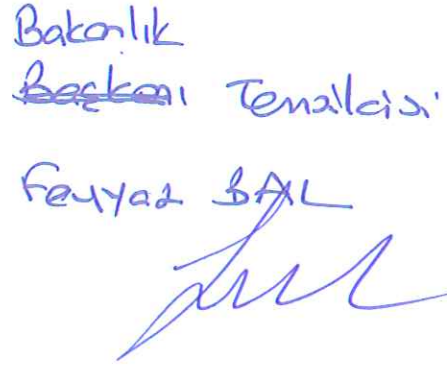 Bakanlık
Başkanı Temsilcisi
Feyyaz BAL